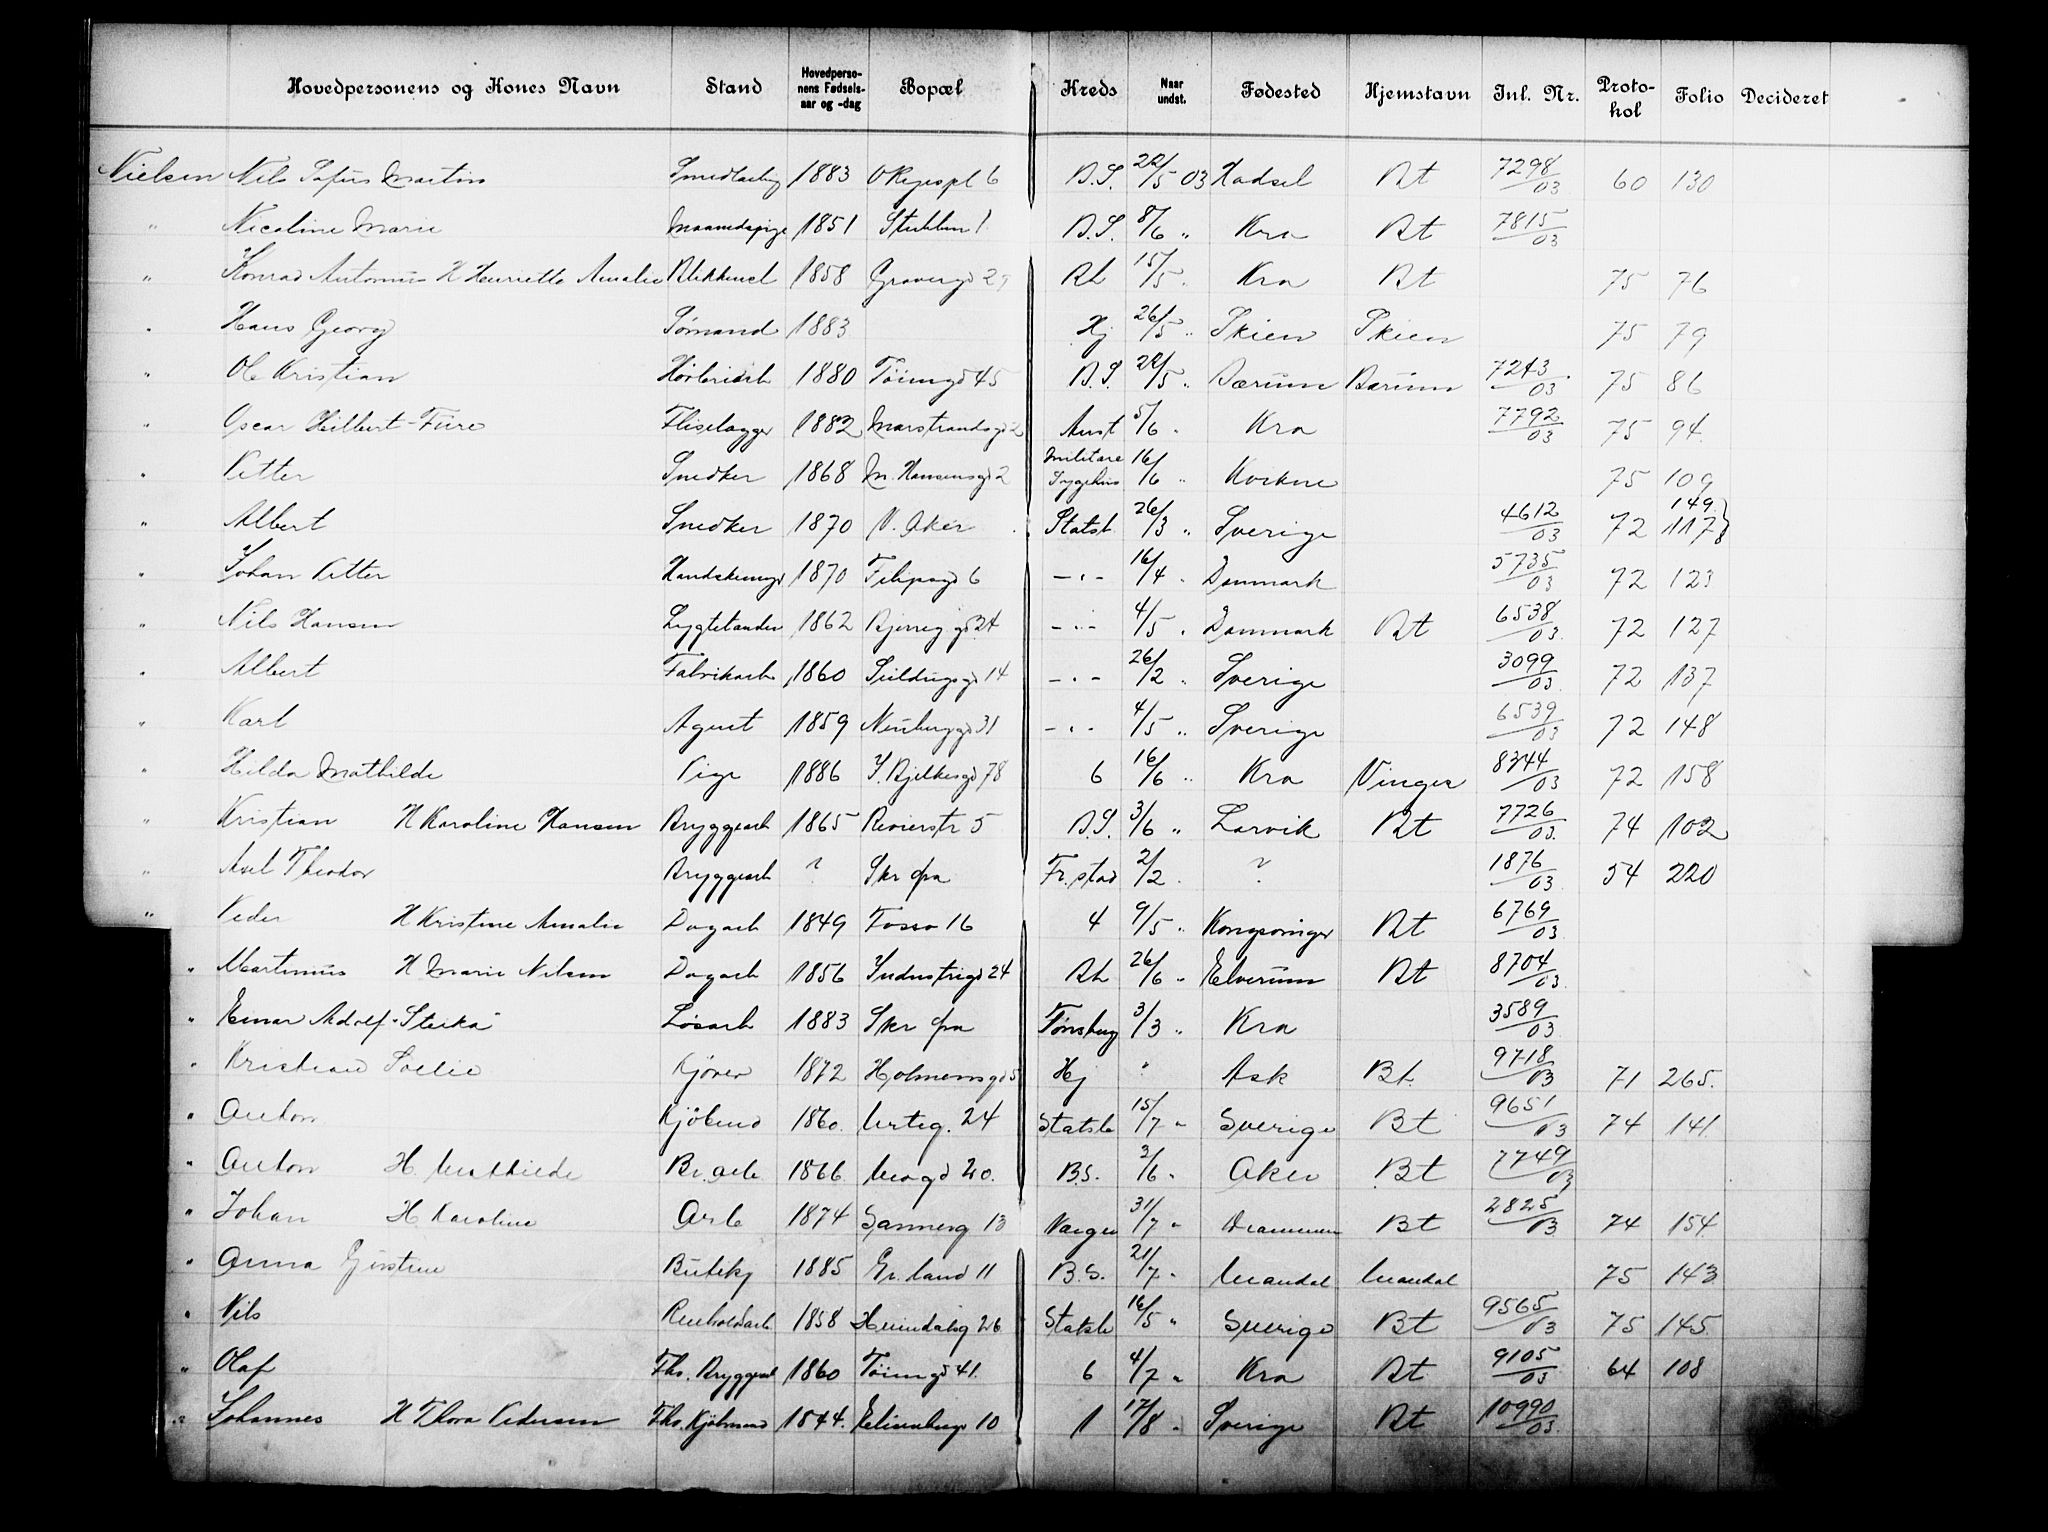 Hovedpersonens og Kones Navn Stand Hovedperso-nens Fødsels-aar og -dag Bopæl Kreds Naar undst. Fødested Hjemstavn Inl. Nr. Proto-kol Folio Decideret
Nielsen Nils Martin 1883 6 B.S. 22/5 03 Hadsel Bt 7298/03 60 130
" Nicoline Marie 1851 1 B.S. 8/6 " Kra Bt 7815/03
" Konrad Antonius H Henriette Amalie 1858 15/5 Kra Bt 75 76
" Hans Georg Sømand 1883 Hj 26/5 " Skien Skien 75 79
" Ole Kristian 1880 Tøiengd 45 B.S. 22/5 " Bærum Bærum 7243/03 75 86
" Oscar Fliselægger 1882 Marstrandsgd 2 Aust 5/6 " Kra 7792/03 75 94
" Petter Snedker 1868 M. Hansensgd 2 Militære Sygehus 16/6 " Kvikne 75 109
" Albert Snedker 1870 V. Aker Statsb 26/3 " Sverige 4612/03 72 149. 117
" Johan Petter 1870 Filipsgd 6 - " - 16/4 " Danmark 5735/03 72 123
" Nils Hansen Lygtetænder 1862 24 - " - 4/5 " Danmark Bt 6538/03 72 127
" Albert Fabrikarb 1860 14 - " - 26/2 " Sverige 3099/03 72 137
" Karl Agent 1859 31 - " - 4/5 " Sverige 6539/03 72 148
" Hilda Mathilde Pige 1886 J. Bjelkesgd 78 6 16/6 " Kra Vinger 8344/03 72 158
" Kristian H Karoline Hansen Bryggearb 1865 Revierstr 5 B.S. 3/6 " Larvik Bt 7726/03 74 102
" Axel Theodor Bryggearb ? Skr fra Fr.stad 2/2 " ? 1876/03 54 220
" Peder H Kristine Amalie Dagarb 1849 Fosso 16 4 9/5 " Kongsvinger Bt 6769/03
" Martinius H Marie Nilsen Dagarb 1856 Industrigd 24 26/6 " Elverum Bt 8704/03
" Einar Adolf Løsarb 1883 Skr fra Tønsberg 3/3 " Kra 3589/03
" Kristian Kjører 1872 Holmensgd 5 Hj " Ask Bt. 9718/03 71 265.
" Anton 1860. Urteg. 24 Statsb 15/7 " Sverige Bt 9651/03 74 141.
" Anton H. Mathilde Br. arb 1866 Mogd 20. B.S. 3/6 " Aker Bt 7749/03
" Johan H Karoline Arb 1874 Sannerg 13 31/7 " Drammen Bt 2825/03 74 154.
" Anna Gurstine 1885 Gr. land 11 B.S. 21/7 " Mandal Mandal 75 143
" Nils Renholdsarb 1858 Heimdalsg 26 Statsb 16/5 " Sverige Bt 9565/03 75 145.
" Olaf Fhv. Bryggearb 1860 Tøiengd 41. 6 4/7 " Kra Bt 9105/03 64 108
" Johannes H Thora Pedersen Fhv. Kjøbmand 1844. 10 1 17/8 " Sverige Bt 10990/03